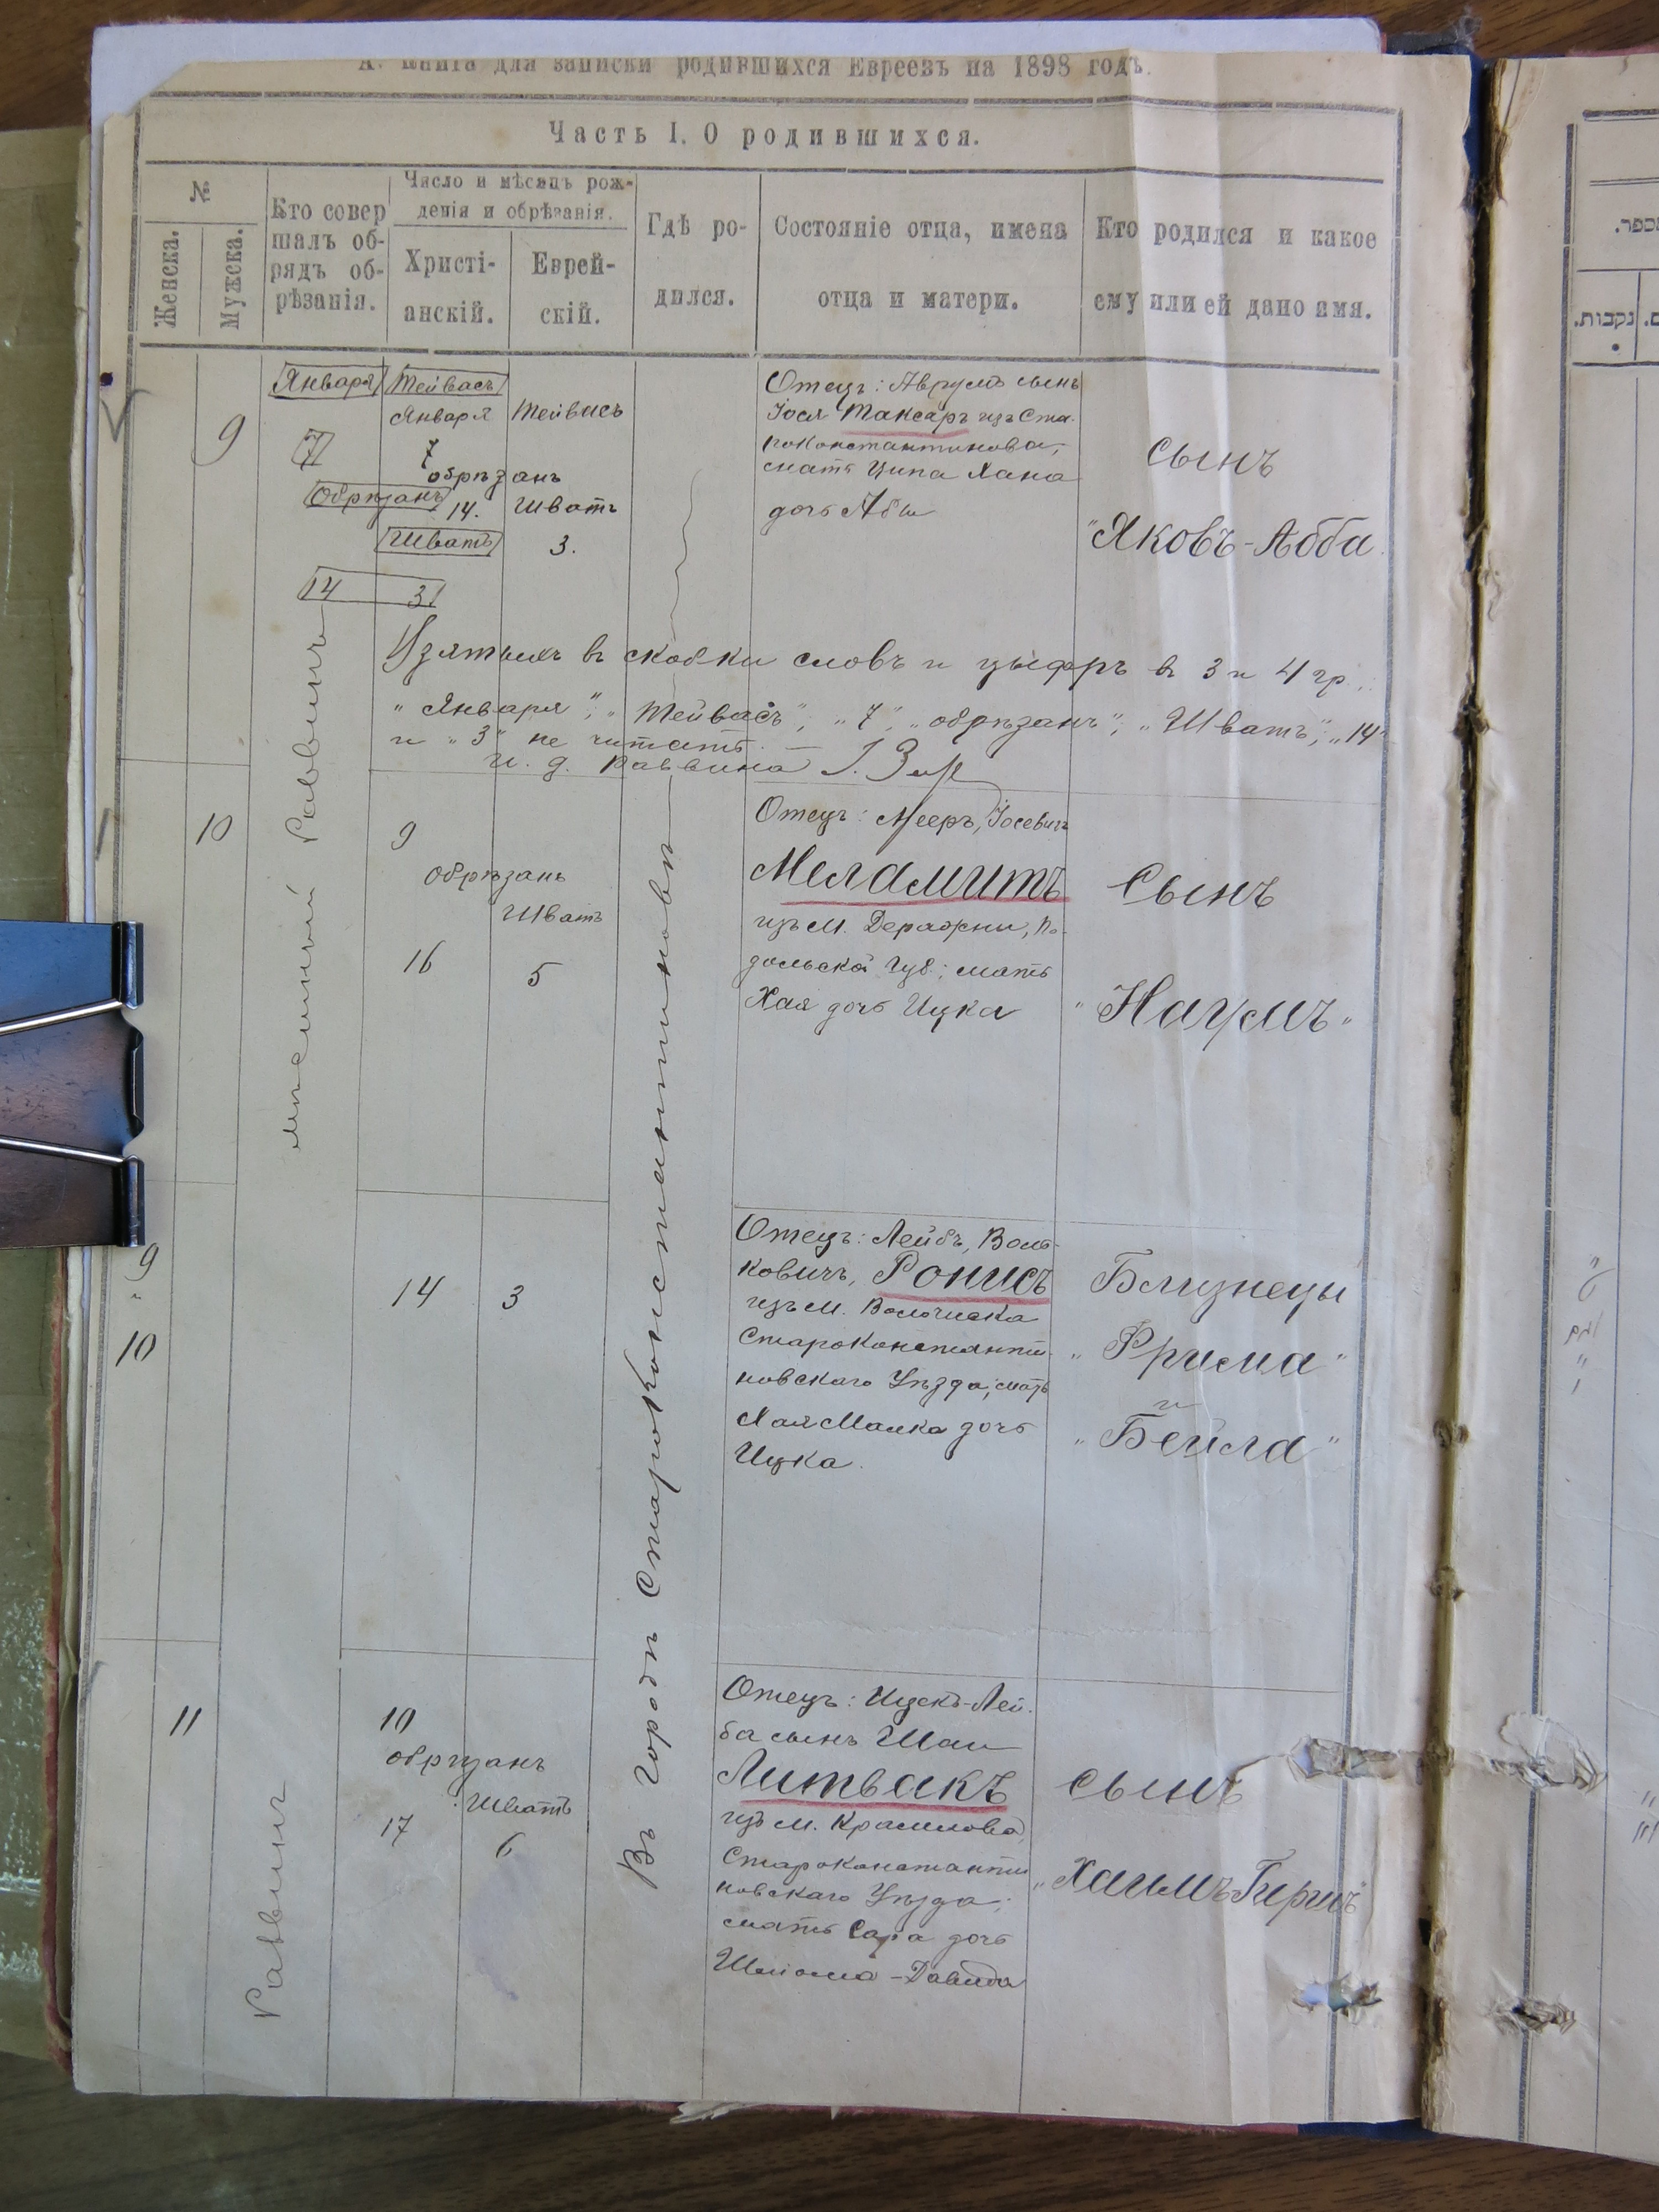 А. Книга для записки родившихся Евреевъ на 1898 годъ.
Часть I. О родившихся.
№
Женска.
Мужска.
Кто совер
шалъ об-
рядъ об-
рѣзанія.
Число и мѣсяцъ рож-
денія и обрѣзанія.
Христі-
анскій.
Еврей-
скій.
Гдѣ ро-
дился.
Состояніе отца, имена
отца и матери.
Кто родился и какое
ему или ей дано имя.
9
Января Тейвасъ
Января Тейвасъ
7
7
обрѣзанъ
Обрѣзанъ
14. Шватъ
Шватъ 3.
14 3
Отецъ: Аврумъ сынъ
Іося Таксаръ изъ Ста-
роконстантинова,
мать Ципа Хана
дочь Абы
сынъ
"Яковъ-Абба
Взятыхъ въ скобки словъ и цыфръ въ 3 и 4 гр.
"Января", "Тейвасъ", "7", "обрѣзанъ", "Шватъ", "14"
и "3" не читать. —
И. д. раввина І.
мѣстный Раввинъ
Въ городѣ Староконстантиновѣ
10
9
обрѣзанъ
Шватъ
16
5
Отецъ: Мееръ, Іосевичъ
Меламитъ
изъ м. Деражни, По-
дольской Губ.; мать
Хая дочь Ицка
Сынъ
"Наумъ"
9
"
10
14
3
Отецъ: Лейбъ, Воль-
ковичъ, Ронисъ
изъ м. Волочиска
Староконстанти-
новскаго Уѣзда; мать
Хая Малка дочь
Ицка.
Близнецы
"Фрима"
и
"Бейла"
11
10
обрѣзанъ
Шватъ
17
6
Отецъ: Ицекъ-Лей-
ба сынъ Шаи
Литвакъ
изъ м. Красилова,
Староконстанти
новскаго Уѣзда;
мать Сара дочь
Шлёма-Давида
сынъ
"Хаимъ Гершъ"
Раввинъ
נקבות.